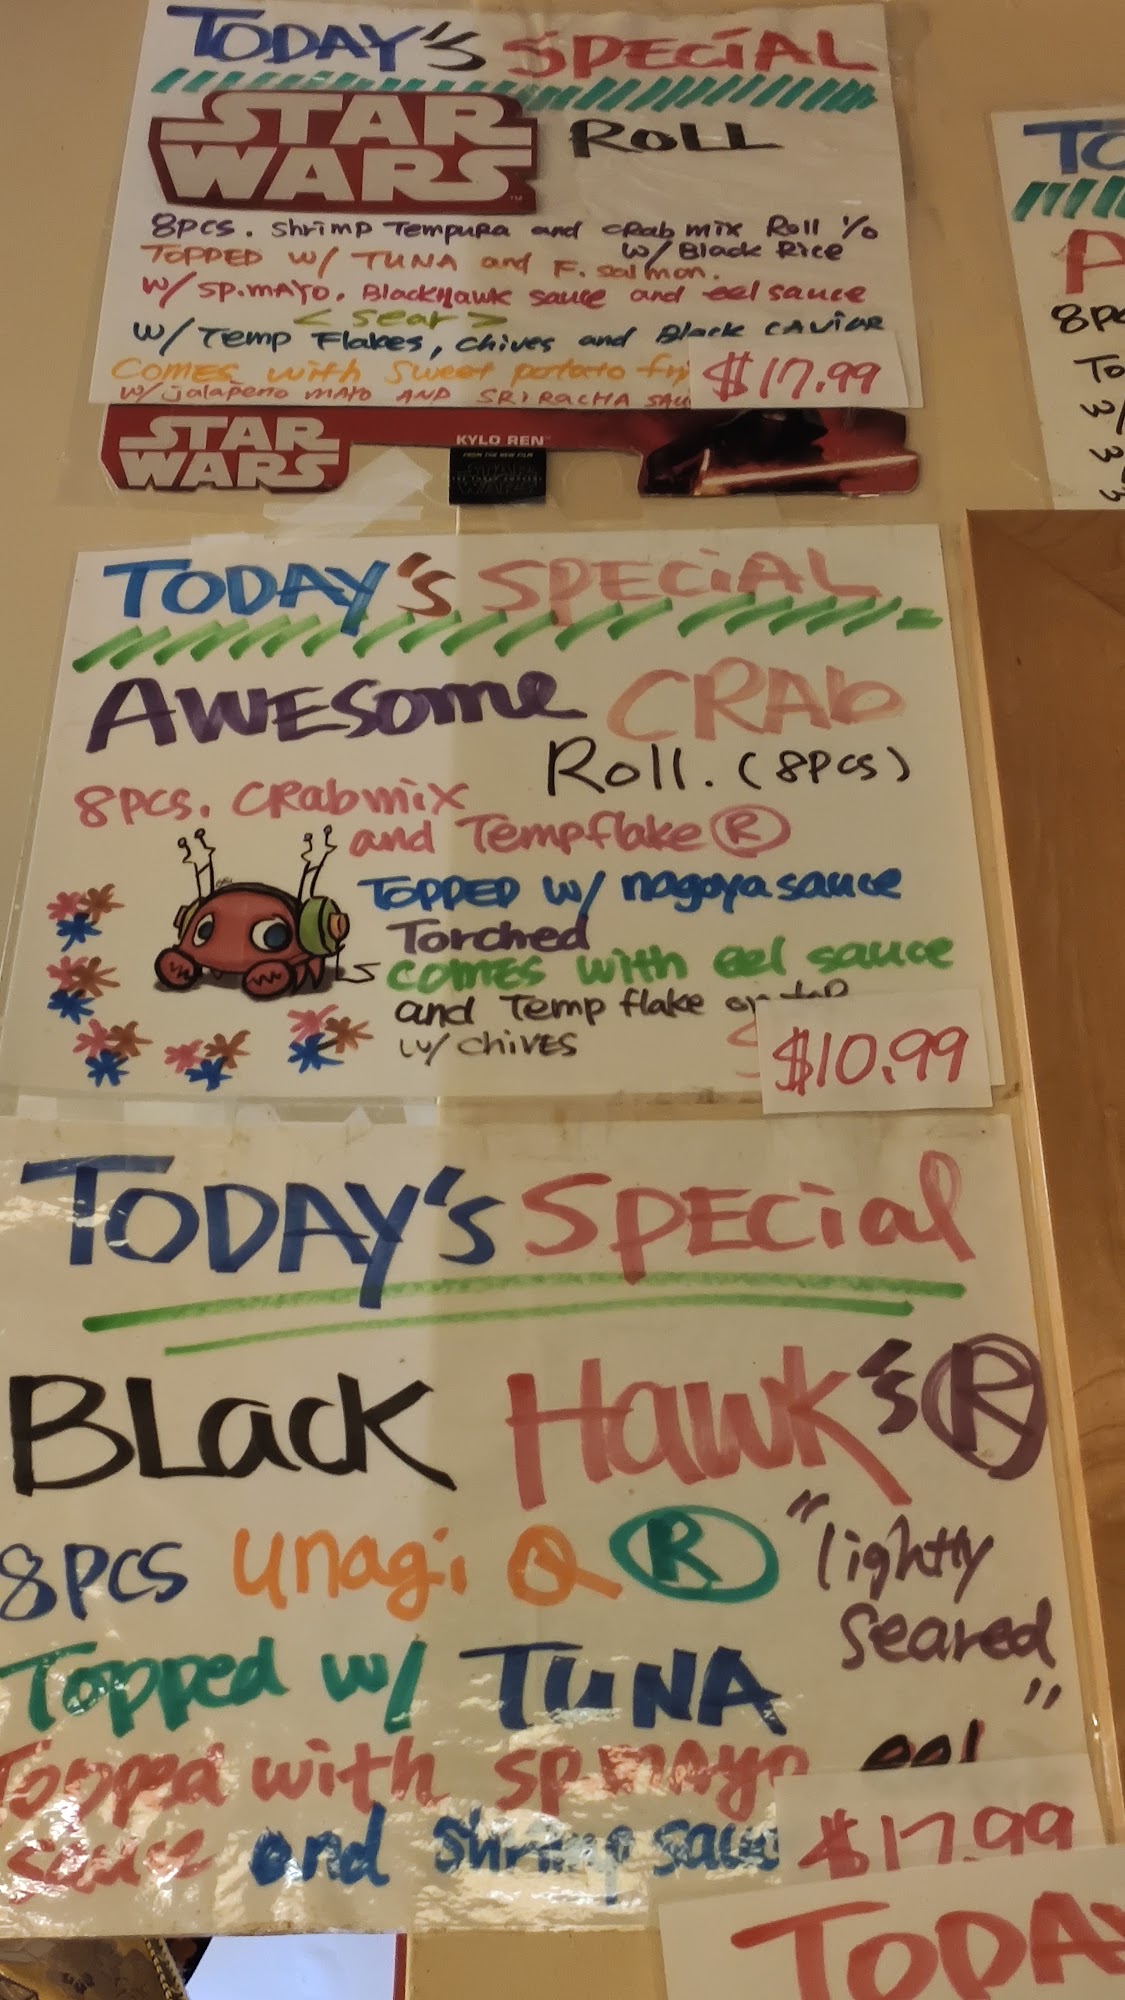 TODAY'S SPECIAL
STAR WARS ROLL
8PCS. Shrimp Tempura and CRab mix Roll I/O
w/ Black Rice
TOPPED w/ TUNA and F. salmon.
w/ SP.MAYO. BlackHawk sauce and eel sauce
< sear >
w/ Temp Flakes, chives and Black CAViAR
Comes with Sweet potato
w/ jalapeño MAYO AND SRIRACHA
$17.99
STAR WARS
KYLO REN
FROM THE NEW FILM
STAR WARS
TODAY'S SPECiAL
AWESOME CRAb
Roll. (8PCS)
8PCS. CRabmix
and Tempflake Ⓡ
TOPPED w/ nagoya sauce
Torched
comes with eel sauce
and Temp flake on top
w/ CHIVES
$10.99
TODAY'S SPECial
BLacK Hawk's Ⓡ
8PCS unagi Q Ⓡ "lightly
seared"
Topped w/ TUNA
Topped with sp mayo eel
sauce and Shrimp
$17.99
8
TODA